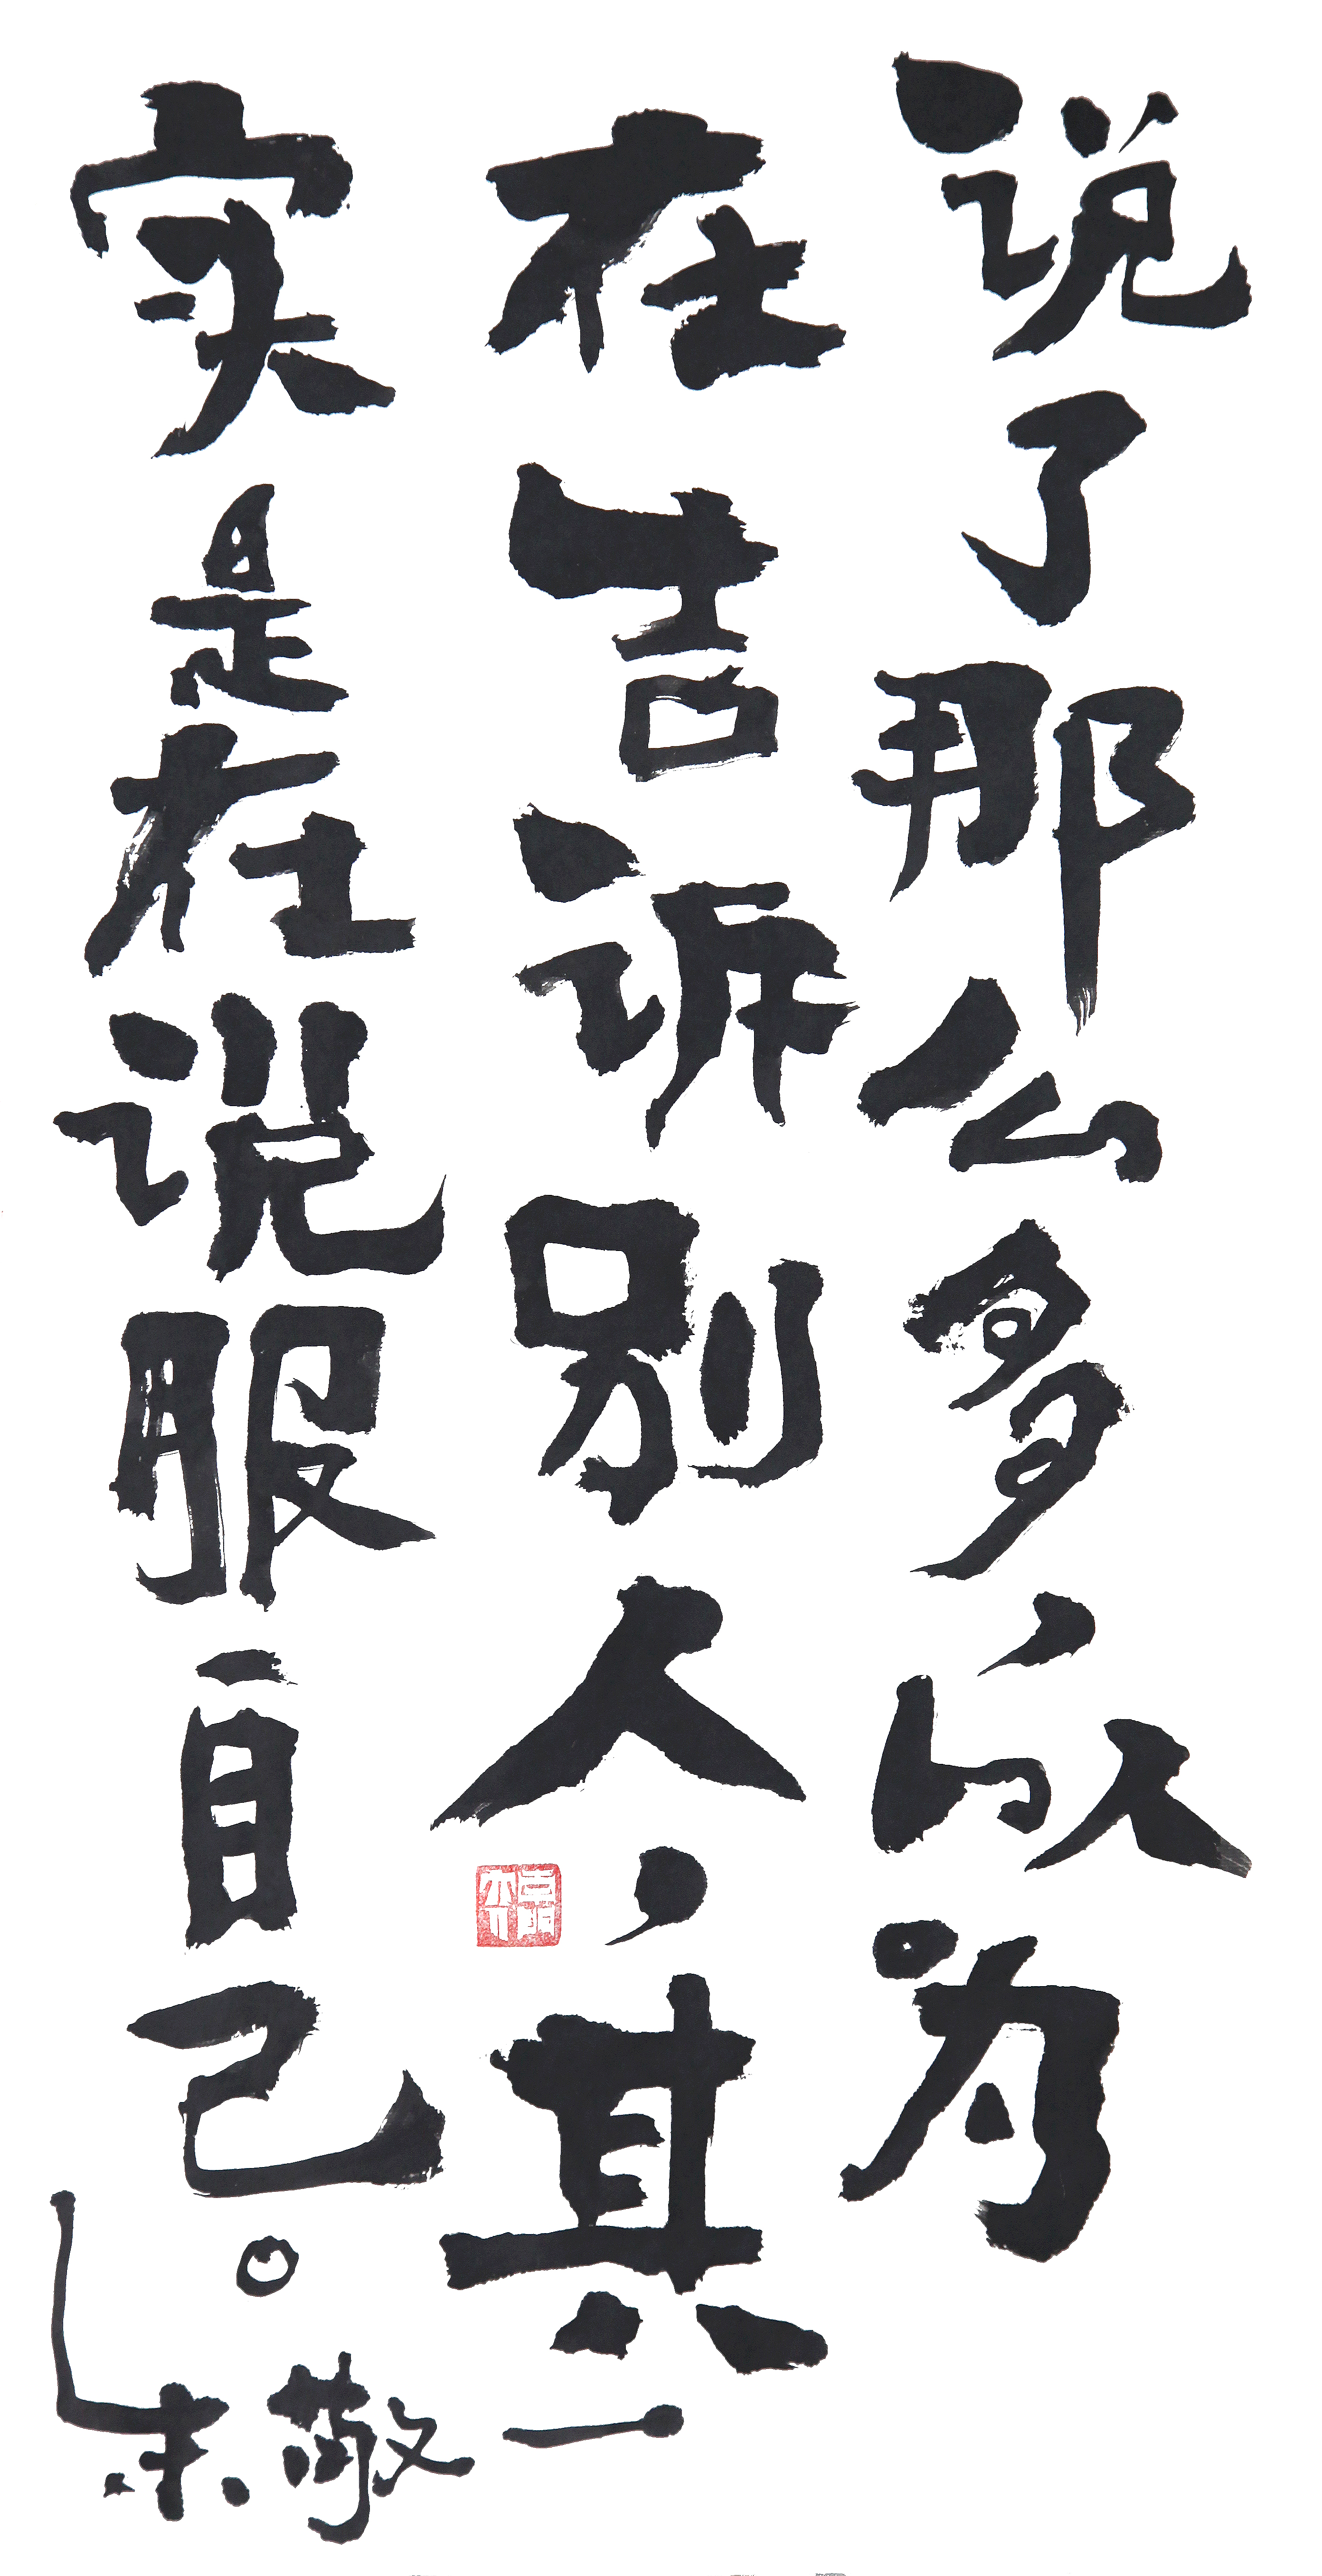 说了那么多,以为
在告诉别人,其
实是在说服自己。